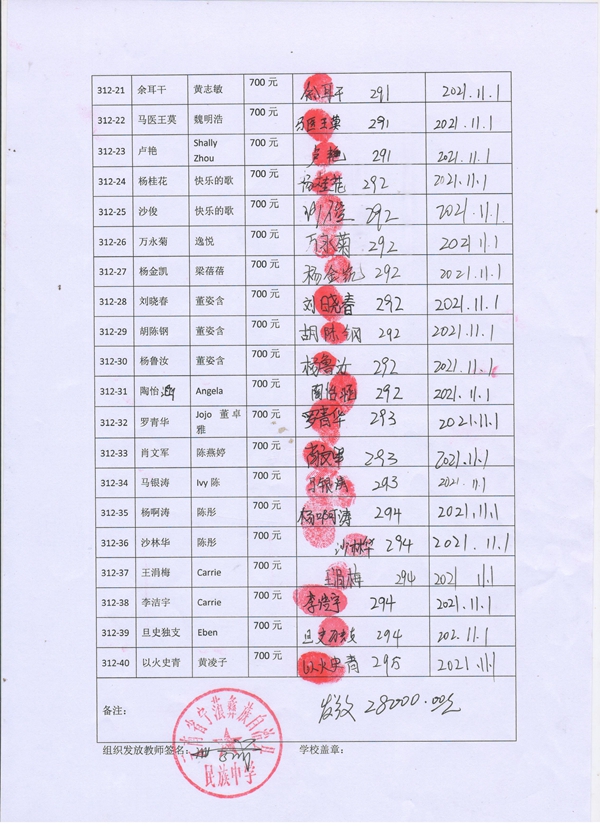 312-21 余耳干 黄志敏 700元 余耳干 291 2021.11.1
312-22 马医王莫 魏明浩 700元 马医王莫 291 2021.11.1
312-23 卢艳 Shally Zhou 700元 卢艳 291 2021.11.1
312-24 杨桂花 快乐的歌 700元 杨桂花 292 2021.11.1
312-25 沙俊 快乐的歌 700元 沙俊 292 2021.11.1
312-26 万永菊 逸悦 700元 万永菊 292 2021.11.1
312-27 杨金凯 梁蓓蓓 700元 杨金凯 292 2021.11.1
312-28 刘晓春 董姿含 700元 刘晓春 292 2021.11.1
312-29 胡陈钢 董姿含 700元 胡陈钢 292 2021.11.1
312-30 杨鲁汝 董姿含 700元 杨鲁汝 292 2021.11.1
312-31 陶怡 Angela 700元 陶怡 292 2021.11.1
312-32 罗青华 Jojo 董卓雅 700元 罗青华 293 2021.11.1
312-33 肖文军 陈燕婷 700元 肖文军 293 2021.11.1
312-34 马银涛 Ivy 陈 700元 马银涛 293 2021.11.1
312-35 杨啊涛 陈彤 700元 杨啊涛 294 2021.11.1
312-36 沙林华 陈彤 700元 沙林华 294 2021.11.1
312-37 王涓梅 Carrie 700元 王涓梅 294 2021 11.1
312-38 李洁宇 Carrie 700元 李洁宇 294 2021.11.1
312-39 旦史独支 Eben 700元 旦史独支 294 202.11.1
312-40 以火史青 黄凌子 700元 以火史青 295 2021.11.1
备注： 发放 28000.00元
组织发放教师签名： 学校盖章：
云南省宁蒗彝族自治县
民族中学